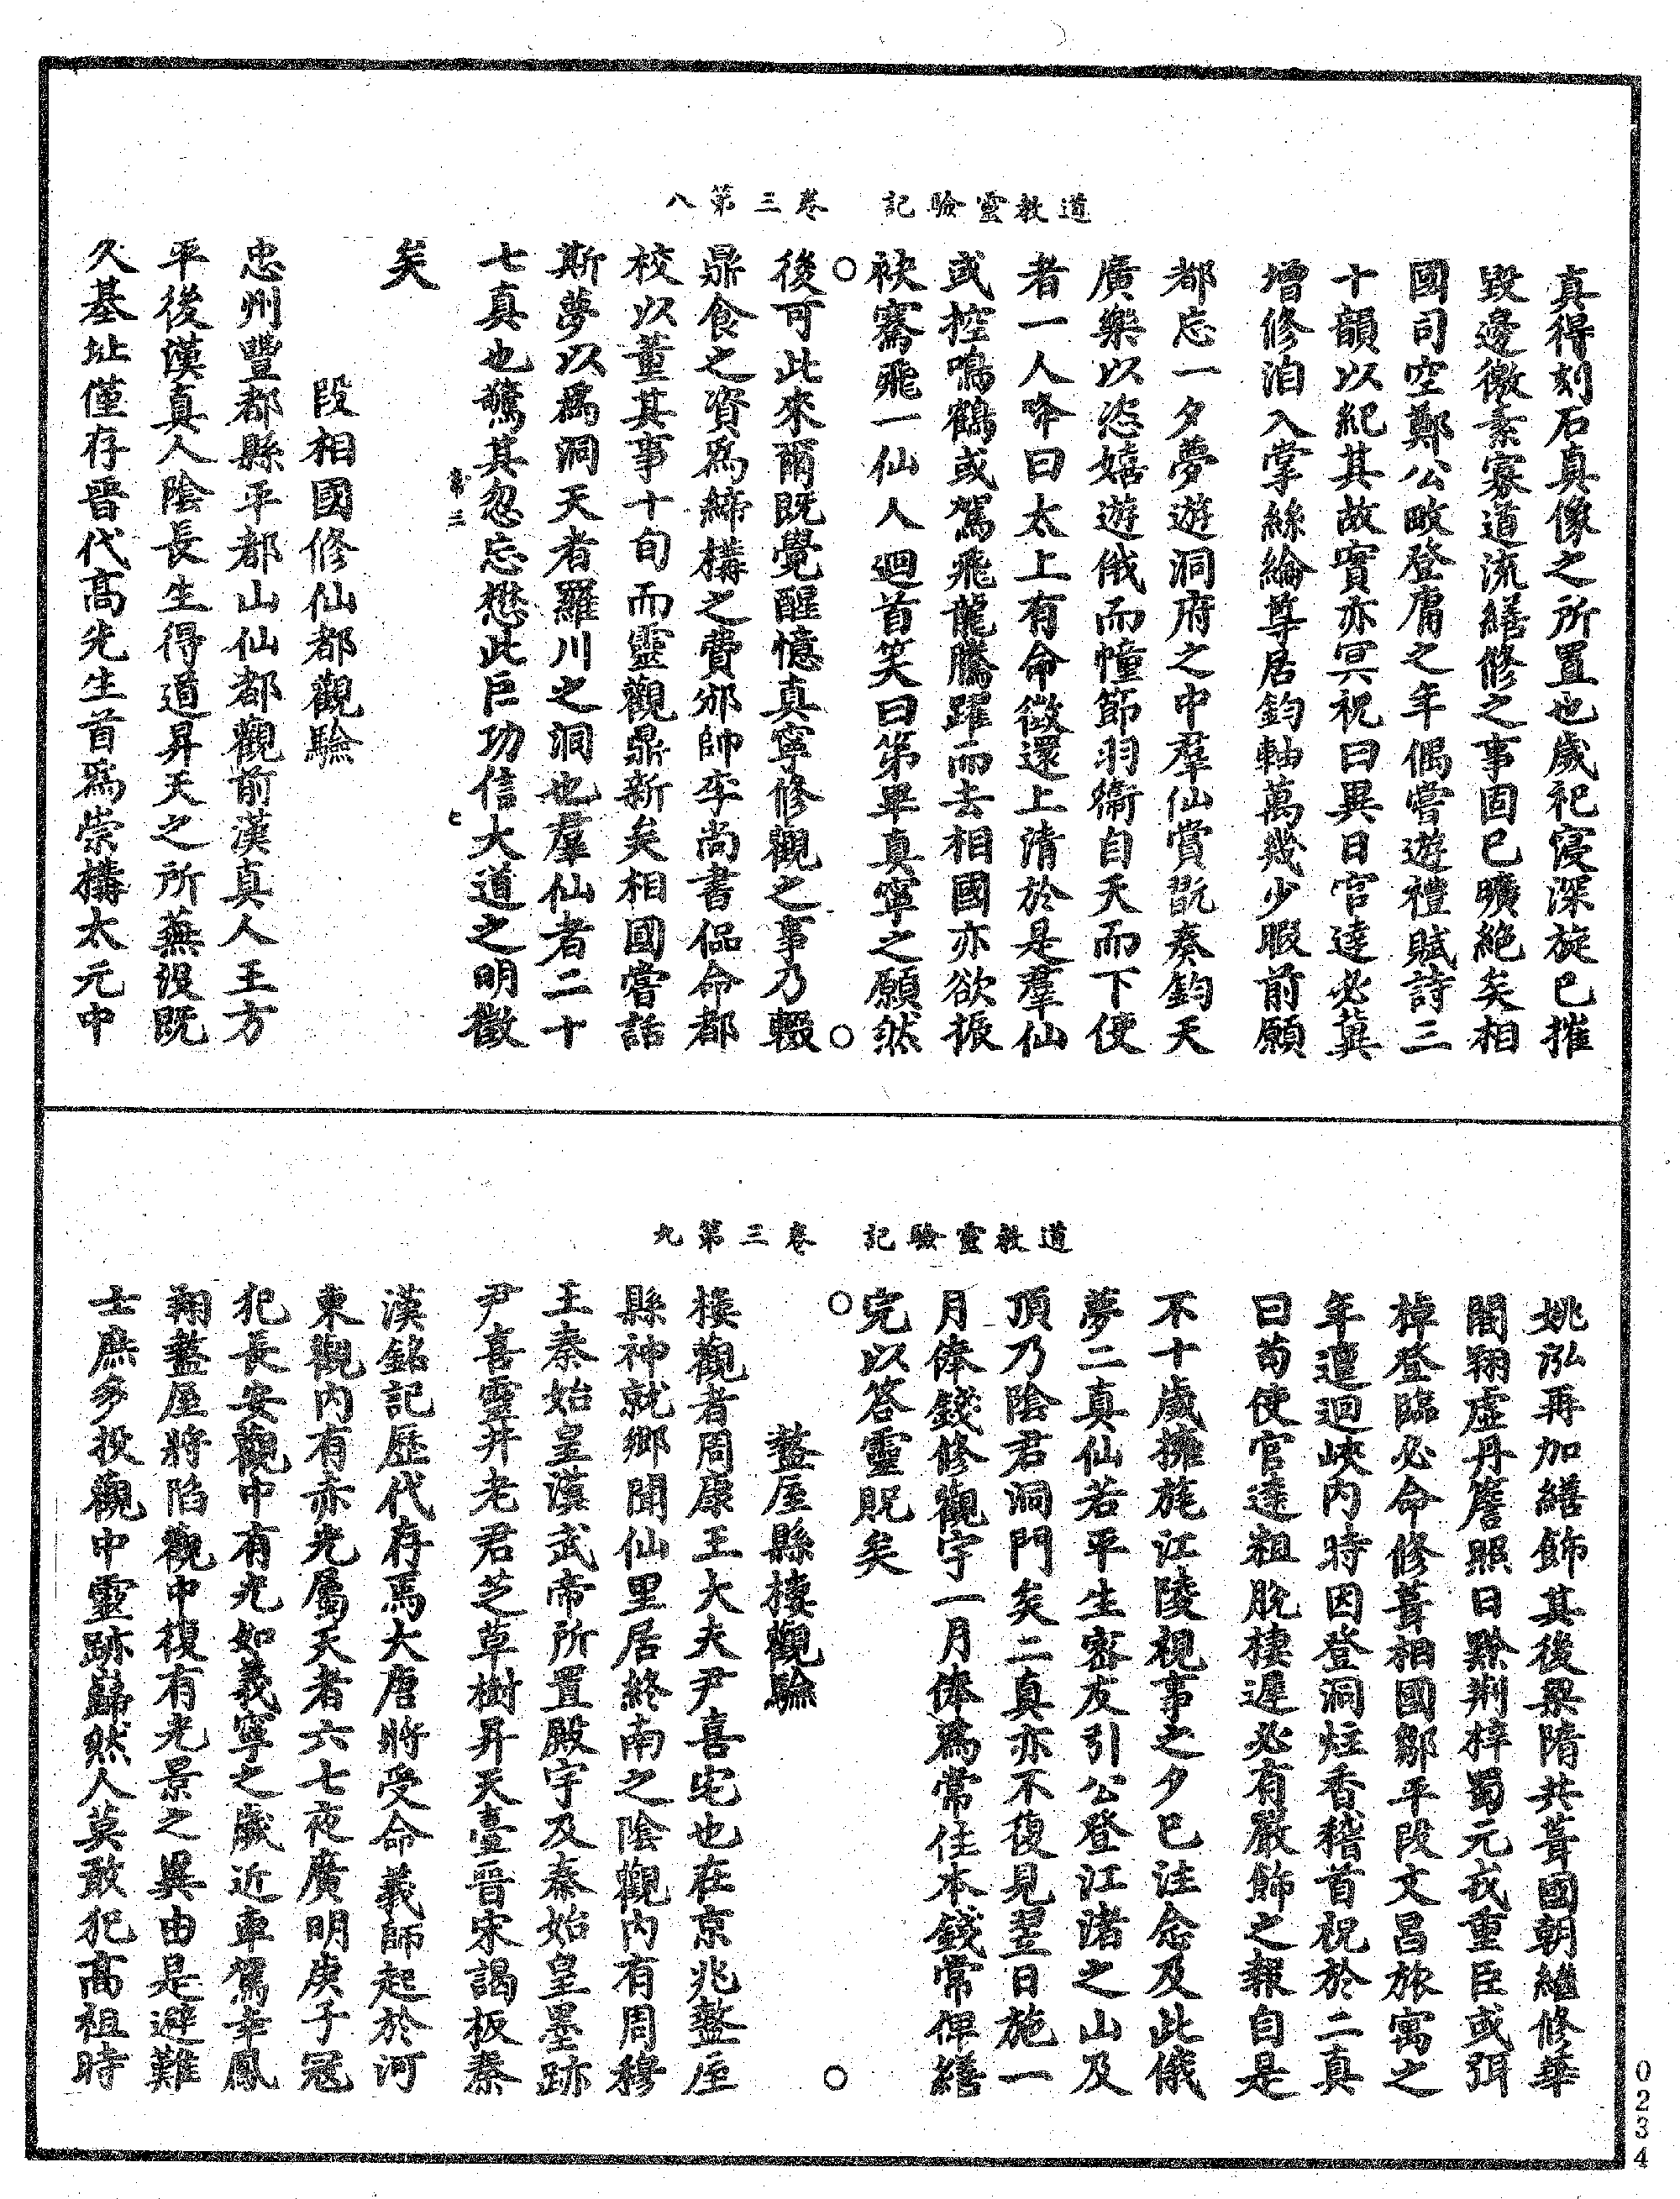 道教靈驗記　卷三第八
真得刻石真像之所置也歲祀寖深旋已摧
毀邊徼素寡道流繕修之事固已曠絶矣相
國司空鄭公畋登庸之年偶嘗遊禮賦詩三
十韻以紀其故實亦冥祝曰異日官達必冀
增修洎入掌絲綸尊居鈞軸萬幾少暇前願
都忘一夕夢遊洞府之中羣仙賞翫奏鈞天
廣樂以恣嬉遊俄而幢節羽衞自天而下使
者一人呼曰太上有命徵還上清於是羣仙
或控鳴鶴或駕飛龍騰躍而去相國亦欲振
袂騫飛一仙人迴首笑曰第畢真寧之願然
後可此來爾既覺醒憶真寧修觀之事乃輟
鼎食之資爲締構之費邠帥李尚書侃命都
校以董其事十旬而靈觀鼎新矣相國嘗話
斯夢以爲洞天者羅川之洞也羣仙者二十
七真也驚其忽忘懋此巨功信大道之明徵
卷三　七
矣
段相國修仙都觀驗
忠州豐都縣平都山仙都觀前漢真人王方
平後漢真人陰長生得道昇天之所蕪没既
久基址僅存晋代高先生首爲崇構太元中
道教靈驗記　卷三第九
姚泓再加繕飾其後梁隋共葺國朝繼修華
閣翔虛丹簷照日黥荆梓蜀元戎重臣或弭
棹登臨必命修葺相國鄒平段文昌旅寓之
年邅迴峽内時因登洞炷香稽首祝於二真
曰苟使官達粗脫棲遲必有嚴飾之報自是
不十歲擁旄江陵視事之夕已注念及此俄
夢二真仙若平生密友引公登江渚之山及
頂乃陰君洞門矣二真亦不復見翌日施一
月俸錢修觀宇一月俸爲常住本錢常俾繕
完以答靈貺矣
盩厔縣樓觀驗
樓觀者周康王大夫尹喜宅也在京兆盩厔
縣神就鄉聞仙里居終南之陰觀内有周穆
王秦始皇漢武帝所置殿宇及秦始皇墨跡
尹喜靈井老君芝草樹昇天臺晋宋謁板秦
漢銘記歷代存焉大唐將受命義師起於河
東觀内有赤光屬天者六七夜廣明庚子冦
犯長安觀中有光如義寧之歲近車駕幸鳳
翔盩厔將陷觀中復有光景之異由是避難
士庶多投觀中靈跡巋然人莫敢犯高祖時
0234